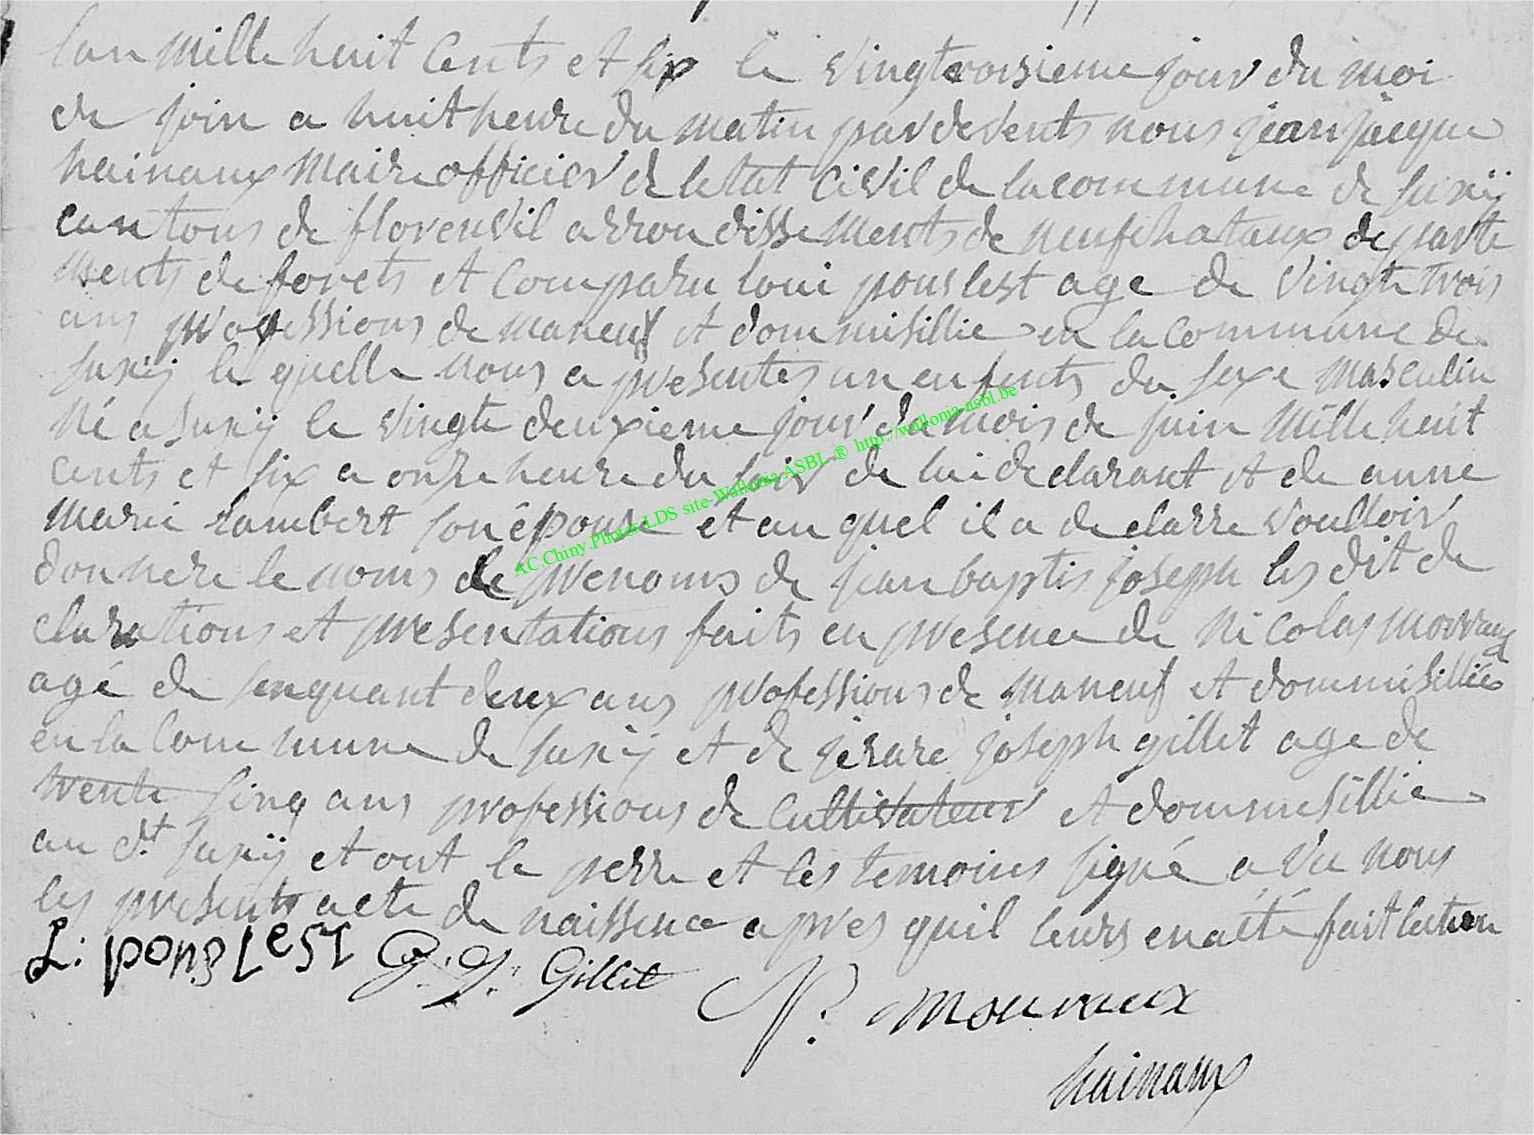 lan mille huit Cents et six le vingt troisieme jour du moi
de join a huit heure du matin par devents nous jean jacque
hainaux Maire officier de letat Civil de la commune de suxÿ
cantons de florenvil arrondissements de neufchataux departe
ments de forets et Comparu loui ponslest age de vingte trois
ans professions de maneuf et dommisillie en la commune de
suxÿ le quelle nous a presentes un enfents du sexe masculin
né a suxÿ le vingte deuxieme jour du mois de juin Mille huit
cents et six a onze heure du soir de lui declarant et de anne
marie lambert son épouse et au quel il a declarre voulloir
donnere le noms de prenoms de jean baptis joseph les dit de
clarations et presentations faits en presence de Nicolas morraux
agé de sinquant deux ans professions de maneuf et dommisilliée
en la Commune de suxÿ et de jerare joseph gillet age de
trente sinq ans professions de Cultivateur et dommesillie
au dt suxÿ et ont le perre et les temoins signé a vec nous
les presents acte de naissence apres quil leurs en a été fait lecture
L: ponsLest G: J: Gillet N: mouraux
hainaux
AC Chiny.Photo LDS site-Wallonia ASBL ® http://wallonia-asbl.be